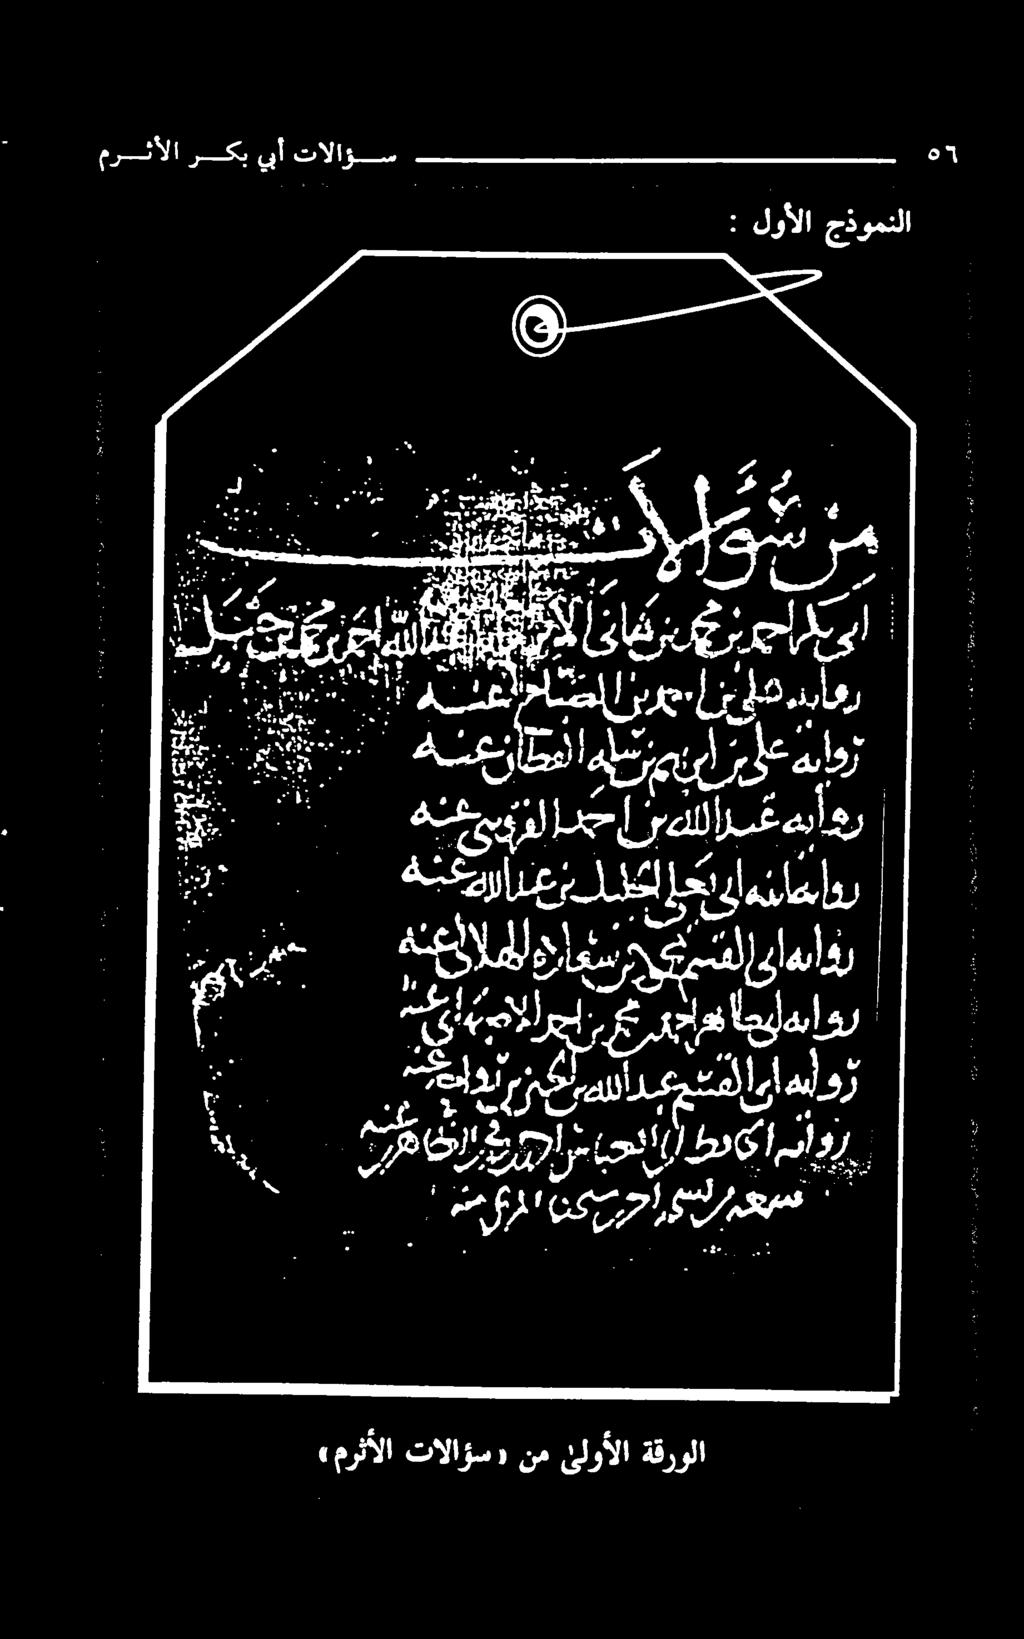 ٥٦ سؤالات أبي بكر الأثرم
النموذج الأول :
من سُؤَالاَت
ابي بكر احمد بن محمد بن هانئ الأثرم ابا عبد الله احمد بن محمد بن حنبل
روايه علي بن احمد بن الصباح عنه
روايه علي بن ابرهيم بن سلمه القطان عنه
روايه عبد الله بن احمد القزويني عنه
روايه ابي يعلى الخليل بن عبد الله عنه
روايه ابي القسم بن سعاده الهلالي عنه
روايه ابي طاهر احمد بن محمد بن احمد الاصبهاني عنه
روايه ابي القسم عبد الله بن الحسين بن رواحه عنه
روايه ابي العباس احمد بن الظاهري عنه
سمعه احمد المزي منه
الورقة الأولىٰ من «سؤالات الأثرم»